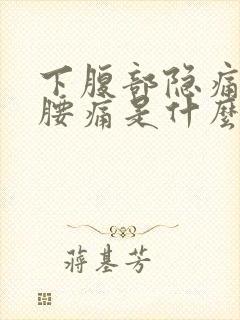 下腹部隐痛
腰痛是什麼
蒋基芳